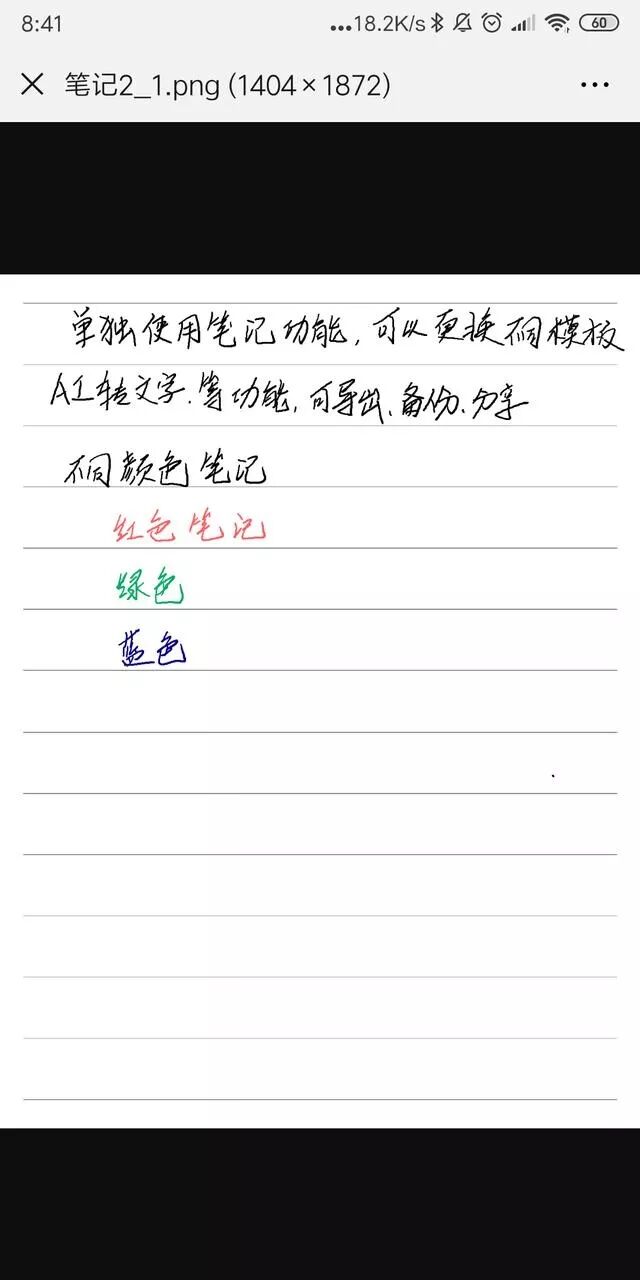 8:41
...18.2K/s
60
笔记2_1.png (1404×1872)
单独使用笔记功能,可以更换不同模板
AI转文字.等功能,可导出、备份、分享
不同颜色笔记
红色笔记
绿色
蓝色